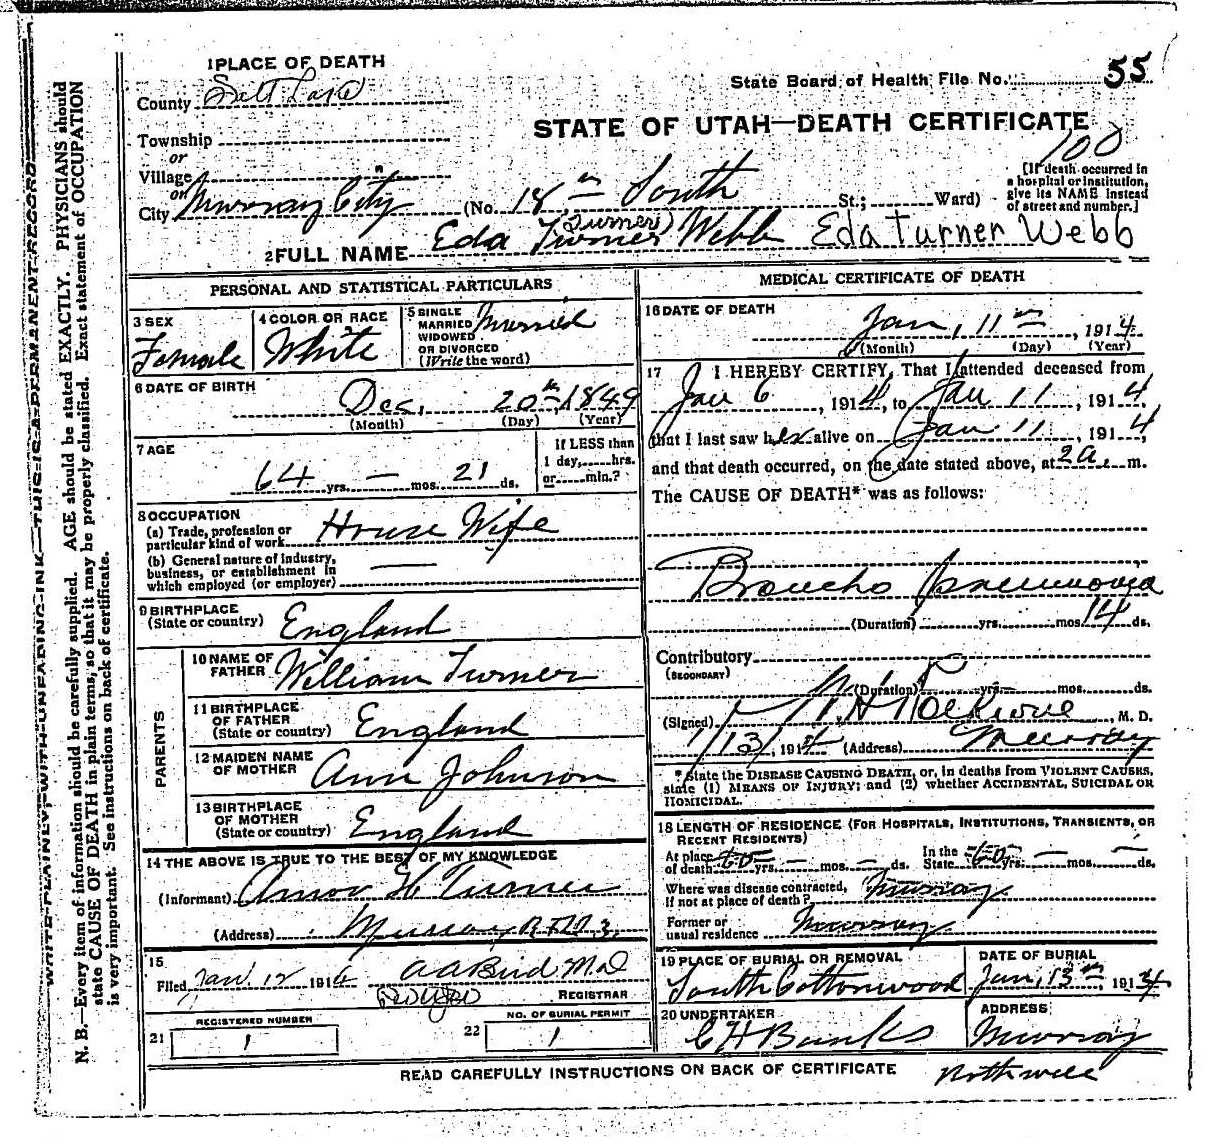 1 PLACE OF DEATH
State Board of Health File No. 55
County Salt Lake
STATE OF UTAH—DEATH CERTIFICATE
Township
100
or
Village
or
City Murray City (No. 18th South St.; Ward)
[If death occurred in a hospital or institution, give its NAME instead of street and number.]
(Turner)
2 FULL NAME Eda Turner Webb Eda Turner Webb
PERSONAL AND STATISTICAL PARTICULARS
3 SEX
Female
4 COLOR OR RACE
White
5 SINGLE
MARRIED
WIDOWED
OR DIVORCED
(Write the word)
Married
6 DATE OF BIRTH
Dec. 20th, 1849
(Month) (Day) (Year)
7 AGE
64 yrs. — mos. 21 ds.
If LESS than
1 day, hrs.
or min.?
8 OCCUPATION
(a) Trade, profession or
particular kind of work House Wife
(b) General nature of industry,
business, or establishment in
which employed (or employer) —
9 BIRTHPLACE
(State or country) England
PARENTS
10 NAME OF
FATHER William Turner
11 BIRTHPLACE
OF FATHER
(State or country) England
12 MAIDEN NAME
OF MOTHER Ann Johnson
13 BIRTHPLACE
OF MOTHER
(State or country) England
14 THE ABOVE IS TRUE TO THE BEST OF MY KNOWLEDGE
(Informant) Amos H Turner
(Address) Murray R.F.D. 3.
15
Filed Jan. 12 1914 A A Bird M.D
REGISTRAR
REGISTERED NUMBER
21 1
NO. OF BURIAL PERMIT
22 1
MEDICAL CERTIFICATE OF DEATH
16 DATE OF DEATH
Jan. 11th, 1914
(Month) (Day) (Year)
17 I HEREBY CERTIFY, That I attended deceased from
Jan 6, 1914, to Jan 11, 1914,
that I last saw her alive on Jan 11, 1914,
and that death occurred, on the date stated above, at 2 a. m.
The CAUSE OF DEATH* was as follows:
Broncho pneumonia
(Duration) yrs. mos. 14 ds.
Contributory
(SECONDARY)
(Duration) yrs. mos. ds.
(Signed) , M. D.
1/13/ 1914 (Address) Murray
* State the DISEASE CAUSING DEATH, or, in deaths from VIOLENT CAUSES,
state (1) MEANS OF INJURY; and (2) whether ACCIDENTAL, SUICIDAL OR
HOMICIDAL.
18 LENGTH OF RESIDENCE (FOR HOSPITALS, INSTITUTIONS, TRANSIENTS, OR
RECENT RESIDENTS)
At place
of death 60 — mos. — ds.
In the
State 60 yrs. — mos. — ds.
Where was disease contracted,
if not at place of death? Murray
Former or
usual residence Murray
19 PLACE OF BURIAL OR REMOVAL
South Cottonwood
DATE OF BURIAL
Jan. 13th, 1914
20 UNDERTAKER
C H Banks
ADDRESS
Murray
READ CAREFULLY INSTRUCTIONS ON BACK OF CERTIFICATE
WRITE PLAINLY, WITH UNFADING INK—THIS IS A PERMANENT RECORD
N. B.—Every item of information should be carefully supplied. AGE should be stated EXACTLY. PHYSICIANS should
state CAUSE OF DEATH in plain terms, so that it may be properly classified. Exact statement of OCCUPATION
is very important. See instructions on back of certificate.